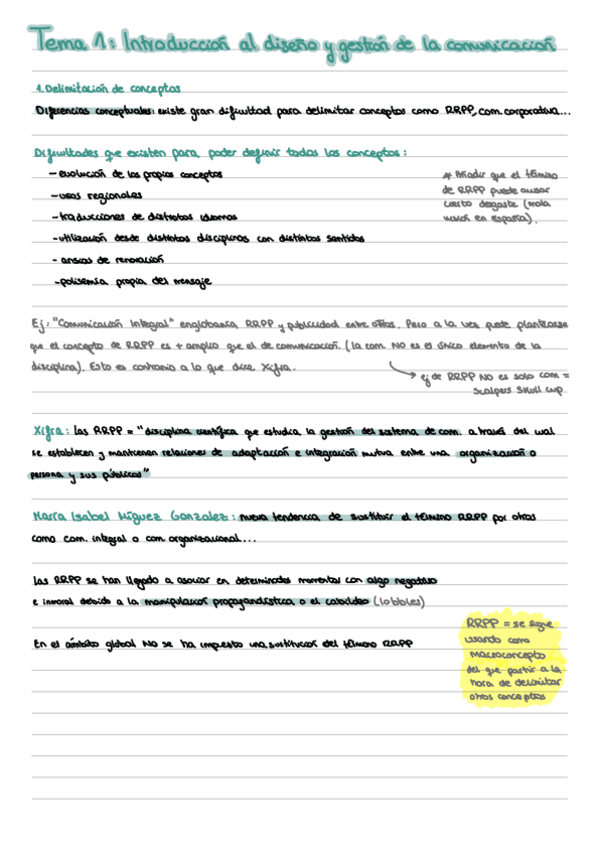 Tema 1: Introducción al diseño y gestión de la comunicación
1. Delimitación de conceptos
Diferencias conceptuales: existe gran dificultad para delimitar conceptos como RRPP, com. corporativa...
Dificultades que existen para poder definir todos los conceptos:
- evolución de los propios conceptos
- usos regionales
- traducciones de distintos idiomas
- utilización desde distintas disciplinas con distintos sentidos
- ansias de renovación
- polisemia propia del mensaje
* Añadir que el término
de RRPP puede causar
cierto desgaste (mala
visión en españa).
Ej: "Comunicación Integral" englobaría RRPP y publicidad entre otros. Pero a la vez puede plantearse
que el concepto de RRPP es + amplio que el de comunicación. (la com. NO es el único elemento de la
disciplina). Esto es contrario a lo que dice Xifra.
ej de RRPP NO es solo com =
Scalpers Skull cup
Xifra: las RRPP = "disciplina científica que estudia la gestión del sistema de com. a través del cual
se establecen y mantienen relaciones de adaptación e integración mutua entre una organización o
persona y sus públicos"
María Isabel Míguez González: nueva tendencia de sustituir el término RRPP por otros
como com. integral o com. organizacional...
Las RRPP se han llegado a asociar en determinados momentos con algo negativo
e inmoral debido a la manipulación propagandística o el cabildeo (lobbies)
En el ámbito global NO se ha impuesto una sustitución del término RRPP
RRPP = se sigue
usando como
macroconcepto
del que partir a la
hora de delimitar
otros conceptos